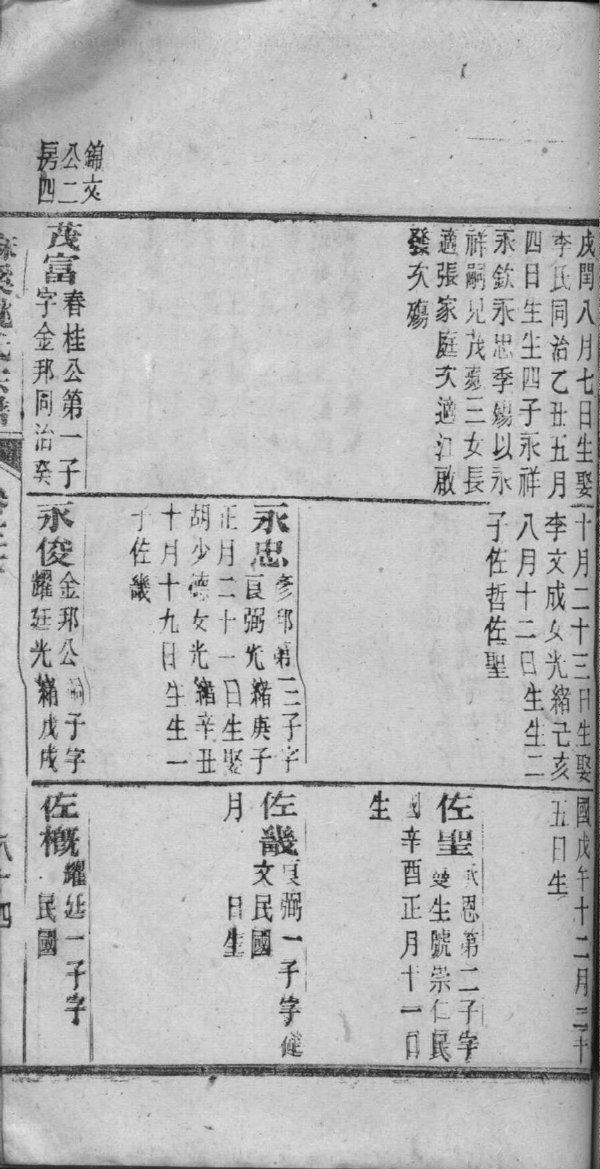 錦文
公二
房四
戌閏八月七日生娶
李氏同治乙丑五月
四日生生四子永祥
永欽永忠季殤以永
祥嗣兄茂
三女長
適張家庭次適江啟
發次殤
茂富
春桂公第一子
字金邦同治癸
十月二十三日生娶
李文成女光緒己亥
八月十二日生生二
子佐哲佐聖
永忠
邦第三子字
良弼光緒庚子
正月二十一日生娶
胡少德女光緒辛丑
十月十九日生生一
子佐畿
永俊
金邦公嗣子字
耀廷光緒戊戌
國戊午十二月二十
五日生
佐聖
永恩第二子字
生號崇仁民
國辛酉正月十一日
生
佐畿
良弼一子字健
文民國
月　日生
佐概
耀廷一子字
民國